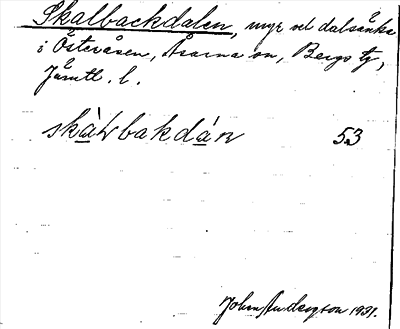 Skalbackdalen, myr vid dalsänka
i Österåsen, Åsarna sn, Bergs tg,
Jämtl. l.
skàlbakdán 53
John Anderzson 1931.